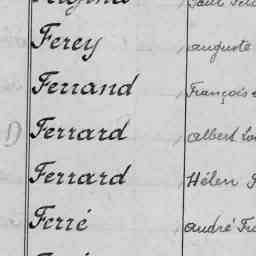 Ferey auguste
Ferrand François
Ferrard albert
Ferrard Hélen
Ferré andré